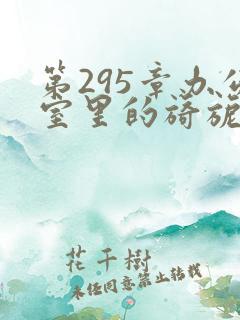 第295章办公
室里的旖旎
花千樹
未经同意禁止转载